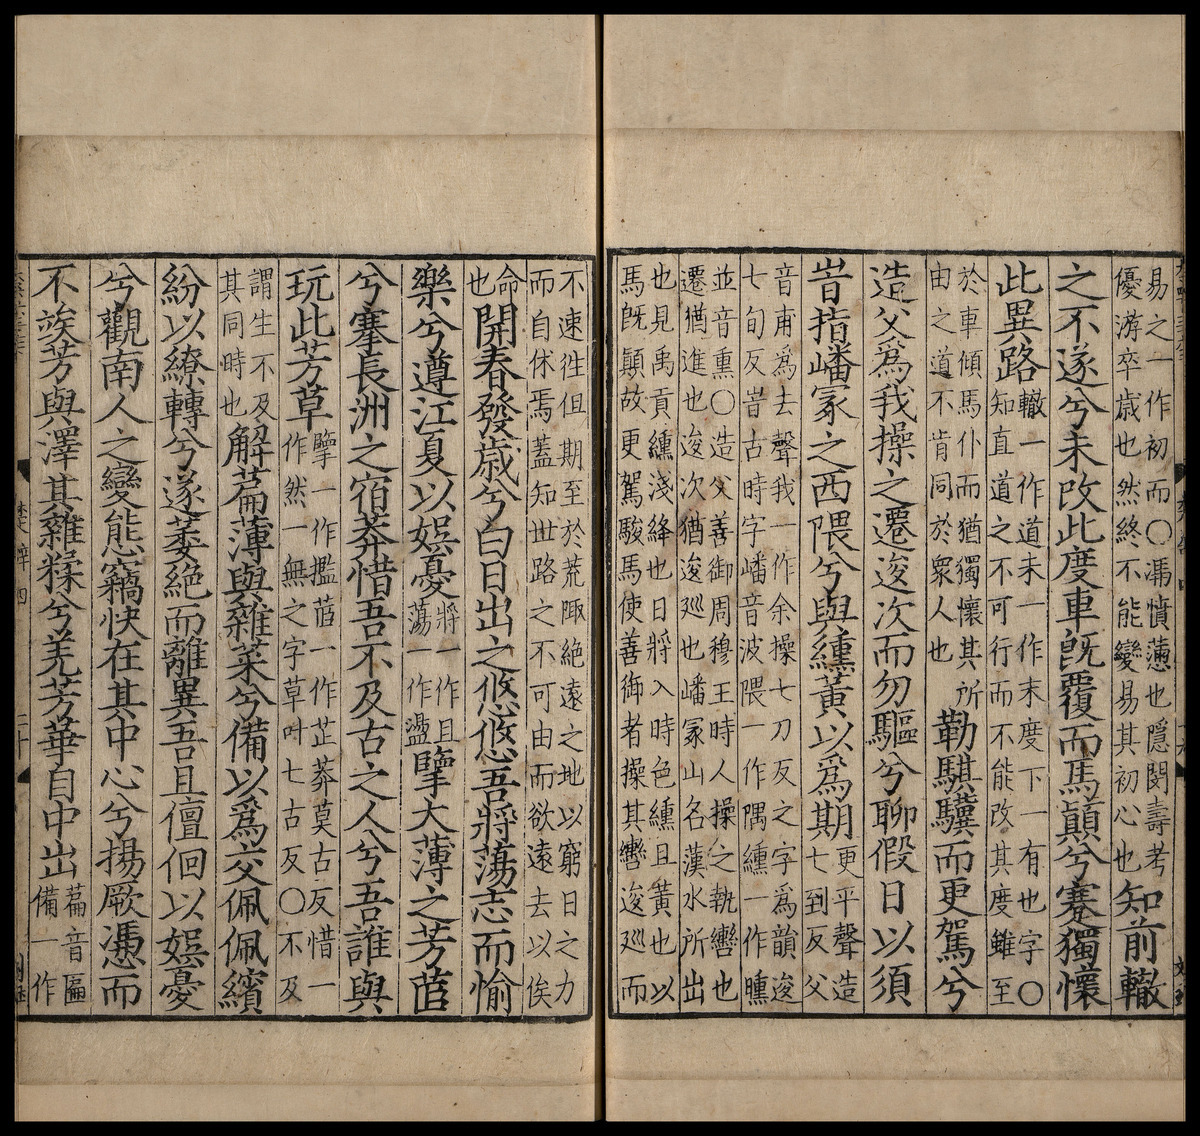 易之一作初而〇馮憤懣也隱閔壽考
優游卒歳也然終不能變易其初心也
知前轍
之不遂兮未改此度車旣覆而馬顛兮蹇獨懷
此異路
轍一作道未一作末度下一有也字〇
知直道之不可行而不能改其度雖至
於車傾馬仆而猶獨懷其所
由之道不肯同於衆人也
勒騏驥而更駕兮
造父爲我操之遷逡次而勿驅兮聊假日以須
旹指嶓冢之西隈兮與纁黃以爲期
更平聲造
七到反父
音甫爲去聲我一作余操七刀反之字爲韻逡
七旬反旹古時字嶓音波隈一作隅纁一作曛
並音熏〇造父善御周穆王時人操之執轡也
遷猶進也逡次猶逡廵也嶓冢山名漢水所出
也見禹貢纁淺絳也日將入時色纁且黃也以
馬旣顛故更駕駿馬使善御者操其轡逡廵而
不速徃但期至於荒陬絶遠之地以窮日之力
而自休焉蓋知世路之不可由而欲遠去以俟
命
也
開春發歳兮白日出之悠悠吾將蕩志而愉
樂兮遵江夏以娯憂
將一作且
蕩一作盪
擥大薄之芳茝
兮搴長洲之宿莽惜吾不及古之人兮吾誰與
玩此芳草
擥一作擥茝一作芷莽莫古反惜一
作然一無之字草叶七古反〇不及
謂生不及
其同時也
解萹薄與雜菜兮備以爲交佩佩繽
紛以繚轉兮遂萎絶而離異吾且儃佪以娯憂
兮觀南人之變態竊快在其中心兮揚厥憑而
不竢芳與澤其雜糅兮羌芳華自中出
萹音匾
備一作